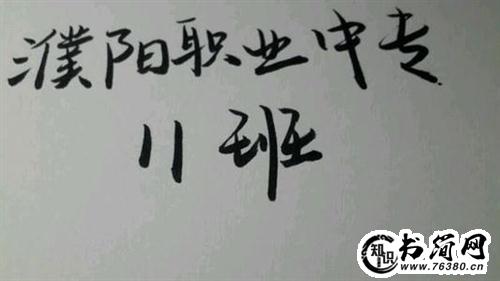 濮阳职业中专
11班
知识
书简网
www.76380.cn